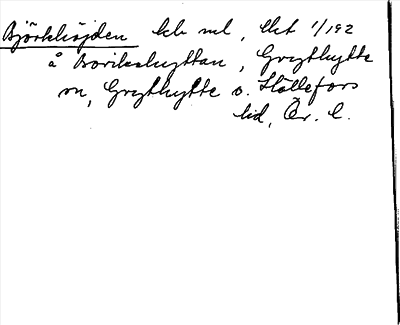 Björkhöjden lb ml, Ekt 1/192
å Boviks­hyttan, Grythytte
sn, Grythytte o. Hällefors
tid, Ör. l.